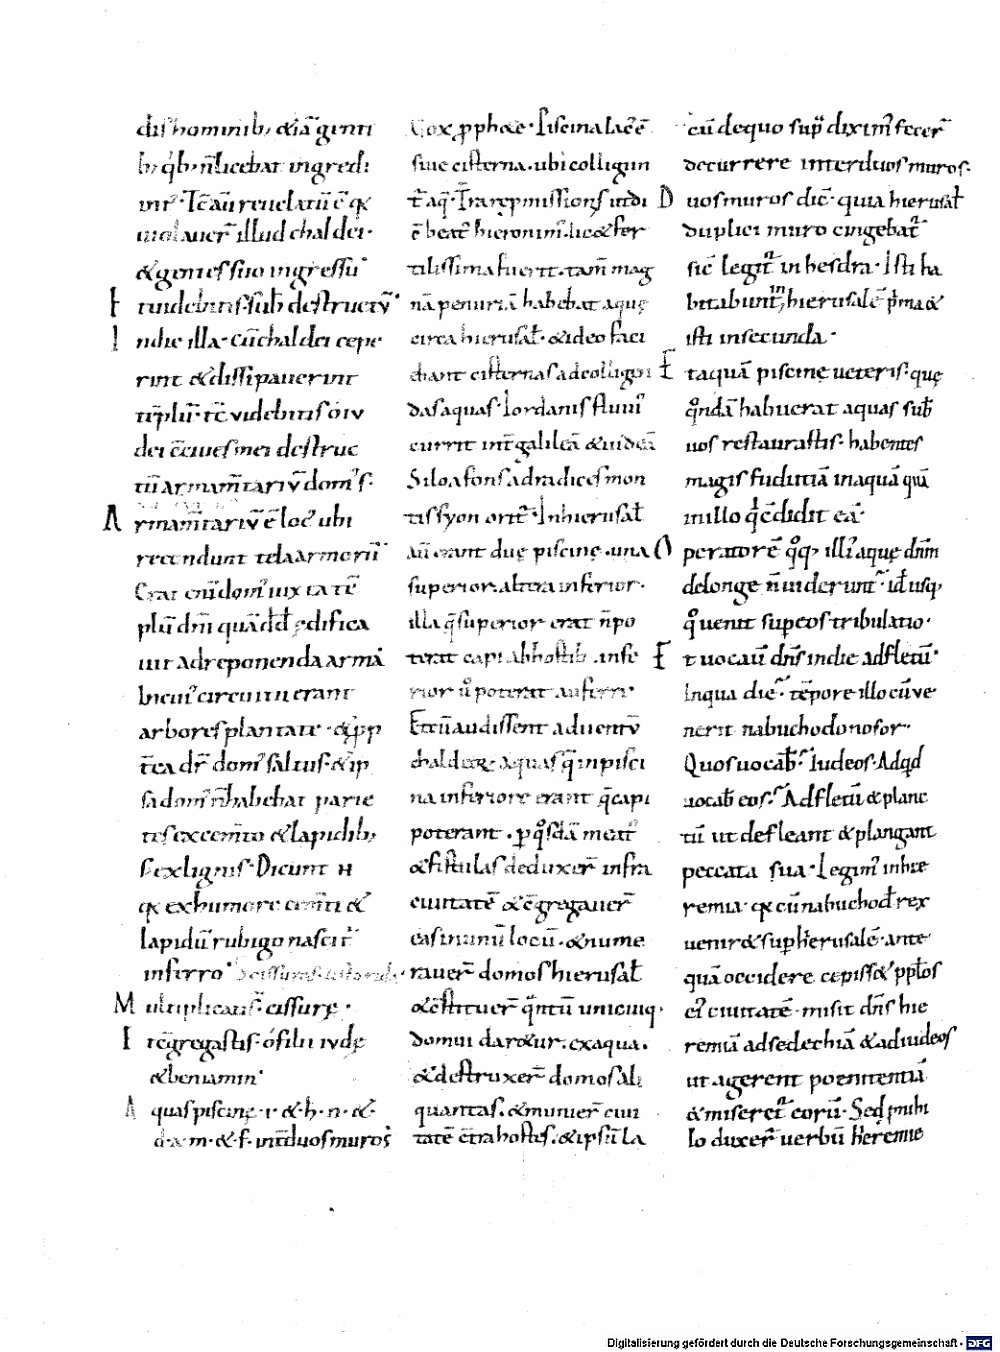 dis hominib; &iā genti
b; qb; n̄ licebat ingredi
int̄. Tc̄ aū reuelatū ē
uiolauer̄ illud chaldei.
& gentes suo ingressu
Et uidebitis. sub destructū.
In die illa. cū chaldei cepe
rint & dissipauerint
tēplū. tc̄ videbitis
dei c̄ciues mei destruc
tū armam̄tariū dom' s.
Armam̄tariū ē loc' ubi
recondunt tela armorū
Erat eni dom' iuxta tē
plū dn̄i quā dd̄ edifica
uit ad reponenda armā
In cui' circuitu erant
arbores plantate. & pp
t̄ea dr̄ dom' saltus. & ip
sa dom' n̄ habebat parie
tes ex cem̄to & lapidib;
s; ex lignis. Dicunt H
ex humore cem̄ti &
lapidū rubigo nascit̄
in ferro.
Multiplicaꝰ. cissure.
Et c̄gregastis. o filii iudę
& beniamin.
Aquas piscinę. i. & h. n. &
d. a. m. & f. int̄ duos muros
Uox pphae. Piscina lac̄ ē
siue cisterna. ubi colligun
t̄ aq̄.
ē beat' hieronim'. lic& fer
tilissima fuerit. tam̄ mag
nā penuriā habebat aquę
circa hierusal̄. & ideo faci
ebant cisternas ad colligen
das aquas. Iordanis fluui'
currit int̄ galileā & iudeā
Siloa fons ad radices mon
tis syon orit̄. In hierusal̄
aū erant duę piscinę. una
superior. altera inferior.
illa q̄ superior erat n̄ po
terat capi ab hostib. infe
rior ū poterat auferri.
Et cū audissent aduentū
chaldeoꝝ. aquas q̄ in pisci
na inferiore erant q̄ capi
poterant. p q̊sdā meat'
& fistulas deduxer̄ infra
ciuitatē & c̄gregauer̄
eas in unū locū. & nume
rauer̄ domos hierusal̄
& c̄stituer̄ q̄ntū unicuiq;
domui dar&ur. ex aqua.
& destruxer̄ domos ali
quantas. & munier̄ ciui
tatē c̄tra hostes. & ipsū la
cū de quo sup dixim' fecer̄
decurrere inter duos muros.
Duos muros dic̄. quia hierusal̄
duplici muro cingebat̄
sic̄ legit̄ in hesdra. Isti ha
bitabunt in hierusalē p̄ma &
isti in secunda.
Et aquā piscinę ueteris. quę
q̊ndā habuerat aquas sub
uos restaurastis. habentes
magis fiduciā in aquā quā
in illo q̄ c̄didit eā.
Operatorē q̊q; illi' aquę dn̄m
de longe n̄ uiderunt. id̄ usq;
q̊ uenit sup eos tribulatio.
Et uocauit dn̄s in die ad fletū.
In qua die. tēpore illo cū ue
nerit nabuchodonosor.
Quos uocab̄. Iudeos. Ad qd
uocab eos. Ad fletū & planc
tū ut defleant & plangant
peccata sua. Legim' in hie
remia. cū nabuchod̄ rex
uenir& sup hierusalē. ante
quā occidere cepiss& pplos
ei' ciuitatē. misit dn̄s hie
remiā ad sedechiā & ad iudeos
ut agerent poenitentiā
& miseret̄ eorū. Sed p nihi
lo duxer̄ uerbū hieremie
Digitalisierung gefördert durch die Deutsche Forschungsgemeinschaft - DFG